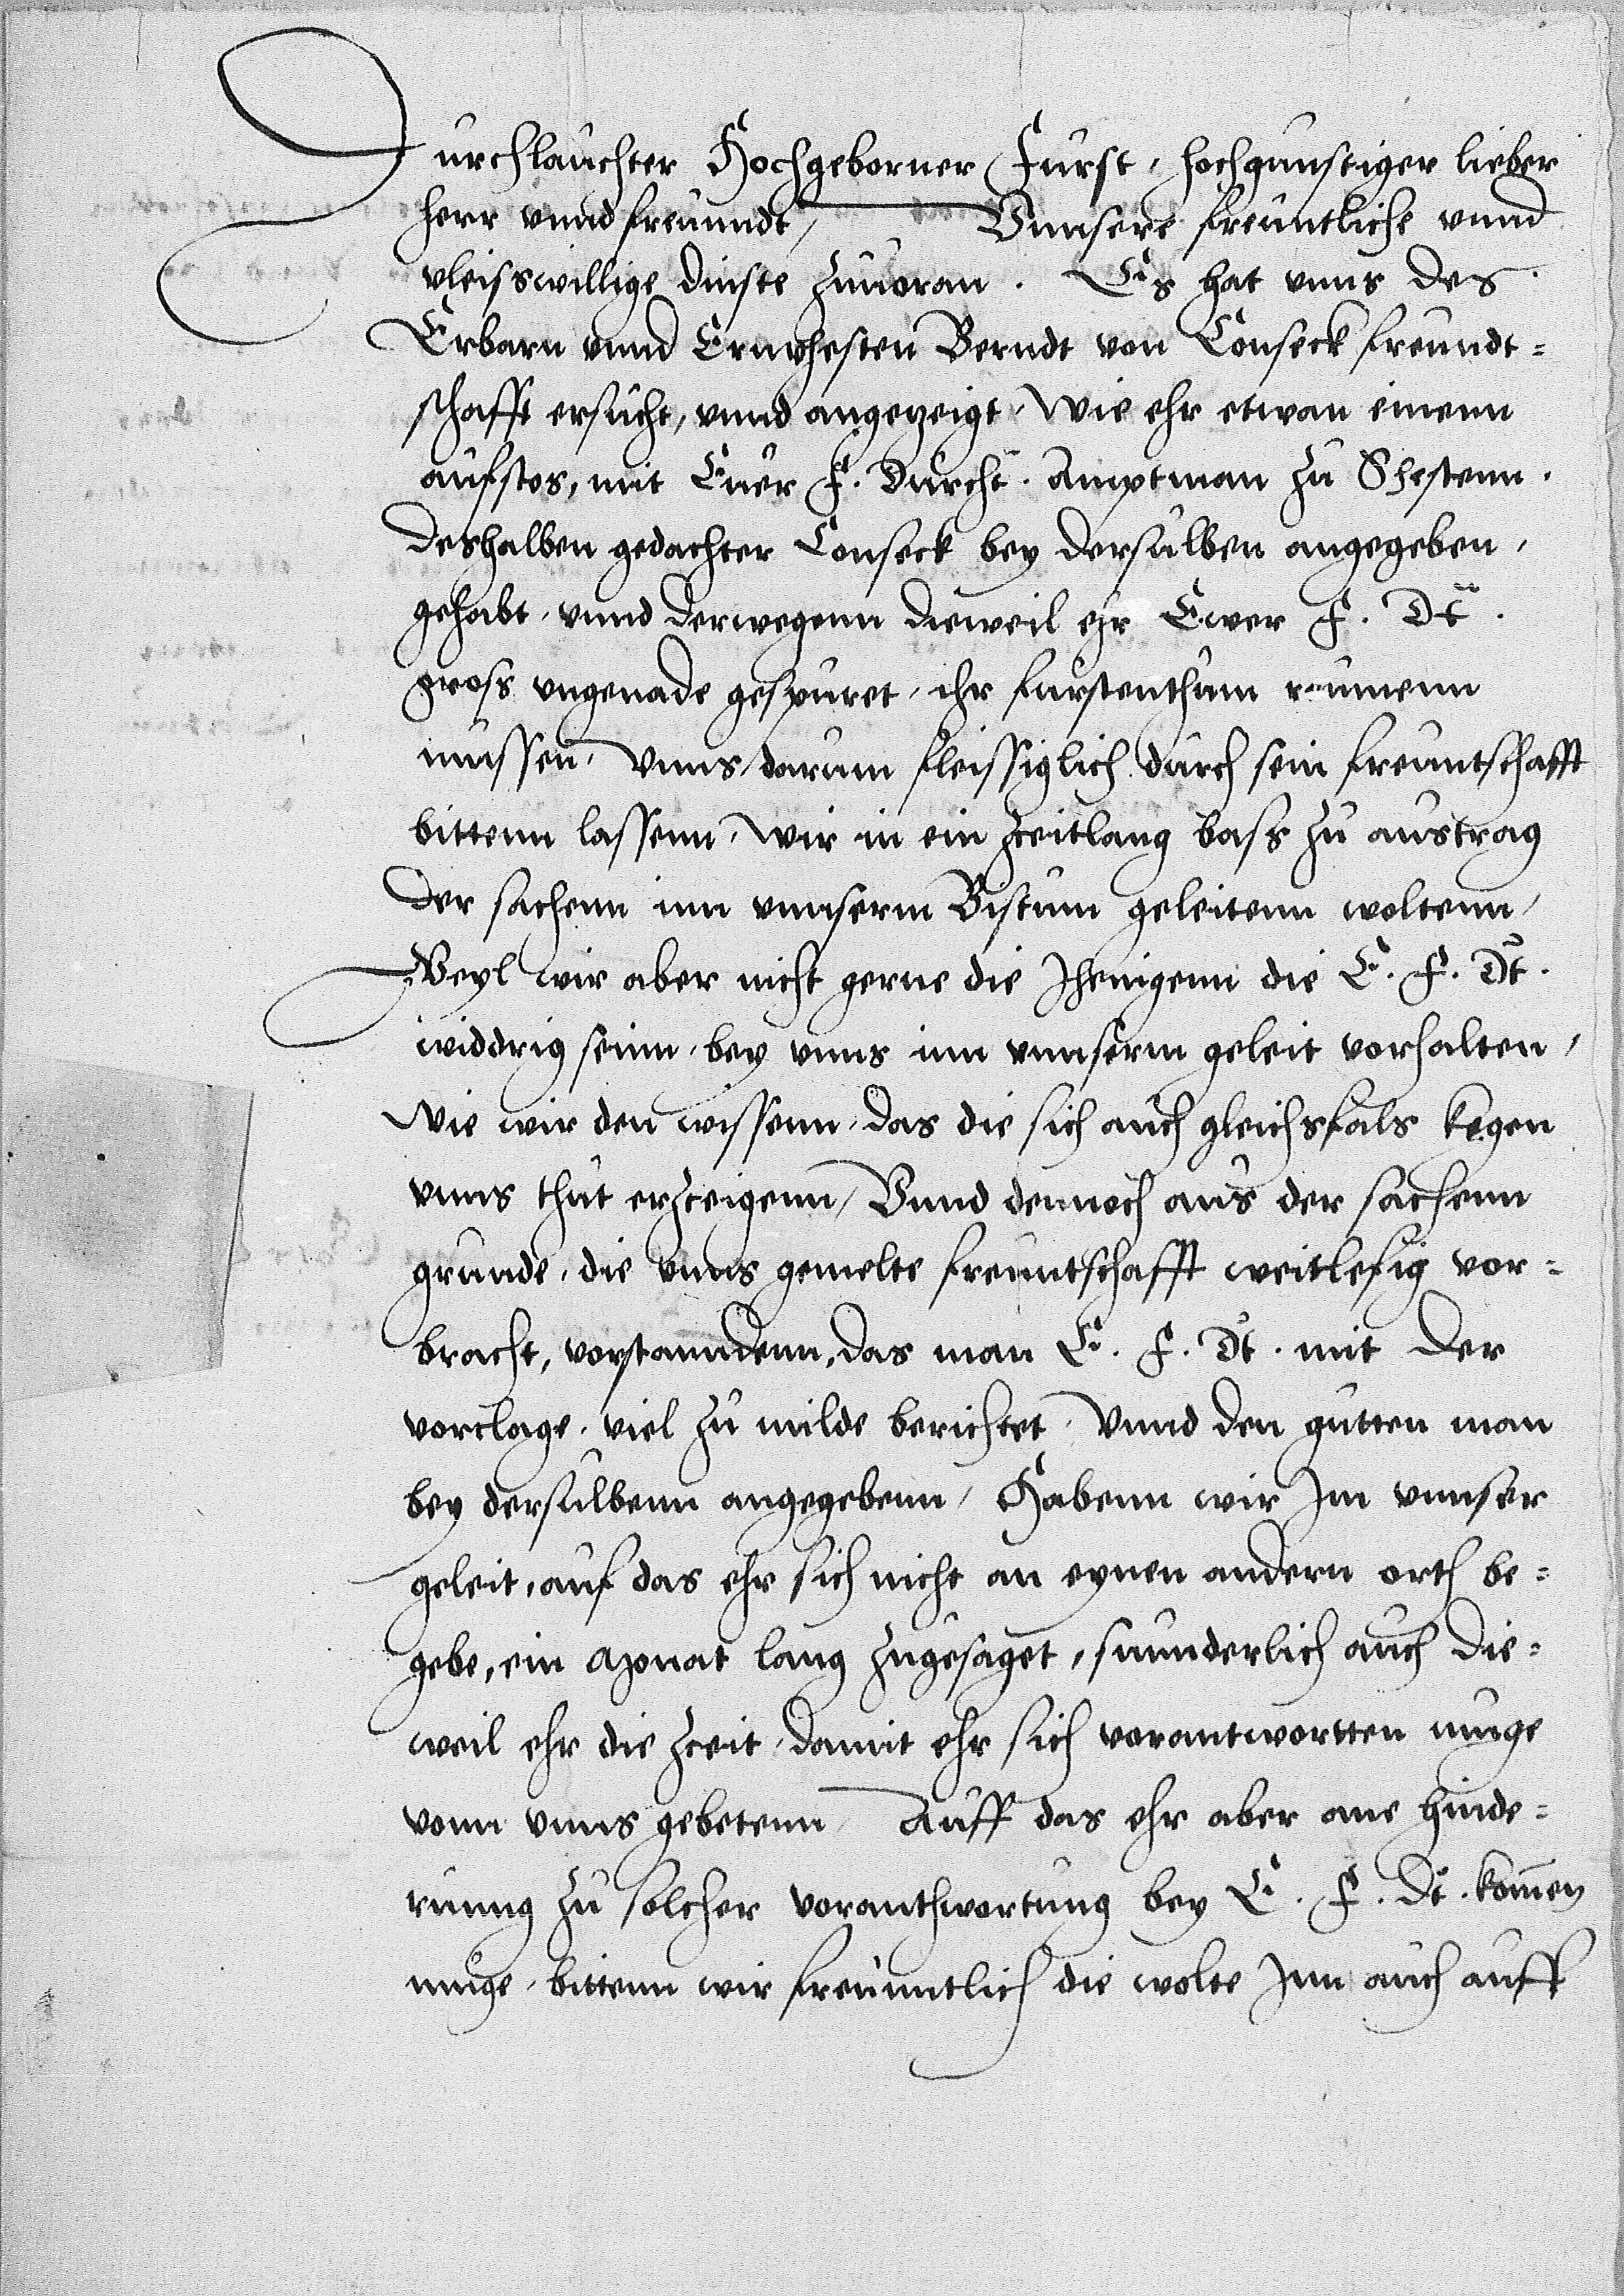 Durchlauchter Hochgeborner Furst, hochgunstiger lieber
herr vnnd freunndt, Vnnsere freuntliche vnnd
vleisswillige dinste zuuoran. Es hat vnns des
Erbarn vnnd Ernvhesten Berndt von Conseck freundt=
schafft ersucht, vnnd angezeigt, Wie ehr etwan einenn
aufstos, mit Euer F. Durcht. Amptman zu
deshalben gedachter Conseck bey derselben angegeben,
gehabt, vnnd derwegenn dieweil ehr Ewer F. Dt.
gross vngenade gespuret, ihr furstenthum reumenn
mussen, Vnns darum fleissiglich durch sein freuntschafft
bittenn lassenn, Wir in ein Zceitlang bass zu austrag
der sachenn inn vnnserm Bistum geleitenn woltenn,
Weyl wir aber nicht gerne die Jhenigenn die E. F. Dt.
widdrig seinn, bey vnns inn vnnserm geleit vorhalten,
Wie wir den wissenn, das die sich auch gleichsfals kegen
vnns thut erzceigenn, Vnnd dennoch aus der sachenn
grunde, die vnns gemelte freuntschafft weitlefig vor=
bracht, vorstanndenn, das man E. F. Dt. mit der
vorclage, viel zu milde berichtet, Vnnd den gutten man
bey derselbenn angegebenn, Habenn wir Jm vnnser
geleit, auf das ehr sich nicht an eynen andern orth be=
gebe, ein Monat lang zugesaget, sunnderlich auch die=
weil ehr die Zceit, damit ehr sich vorantwortten muge
vonn vnns gebetenn, Auff das ehr aber ane hinde=
runng zu solcher voranthwortung bey E. F. Dt. komen
muge, bittenn wir freunntlich die wolte Jnn auch auff